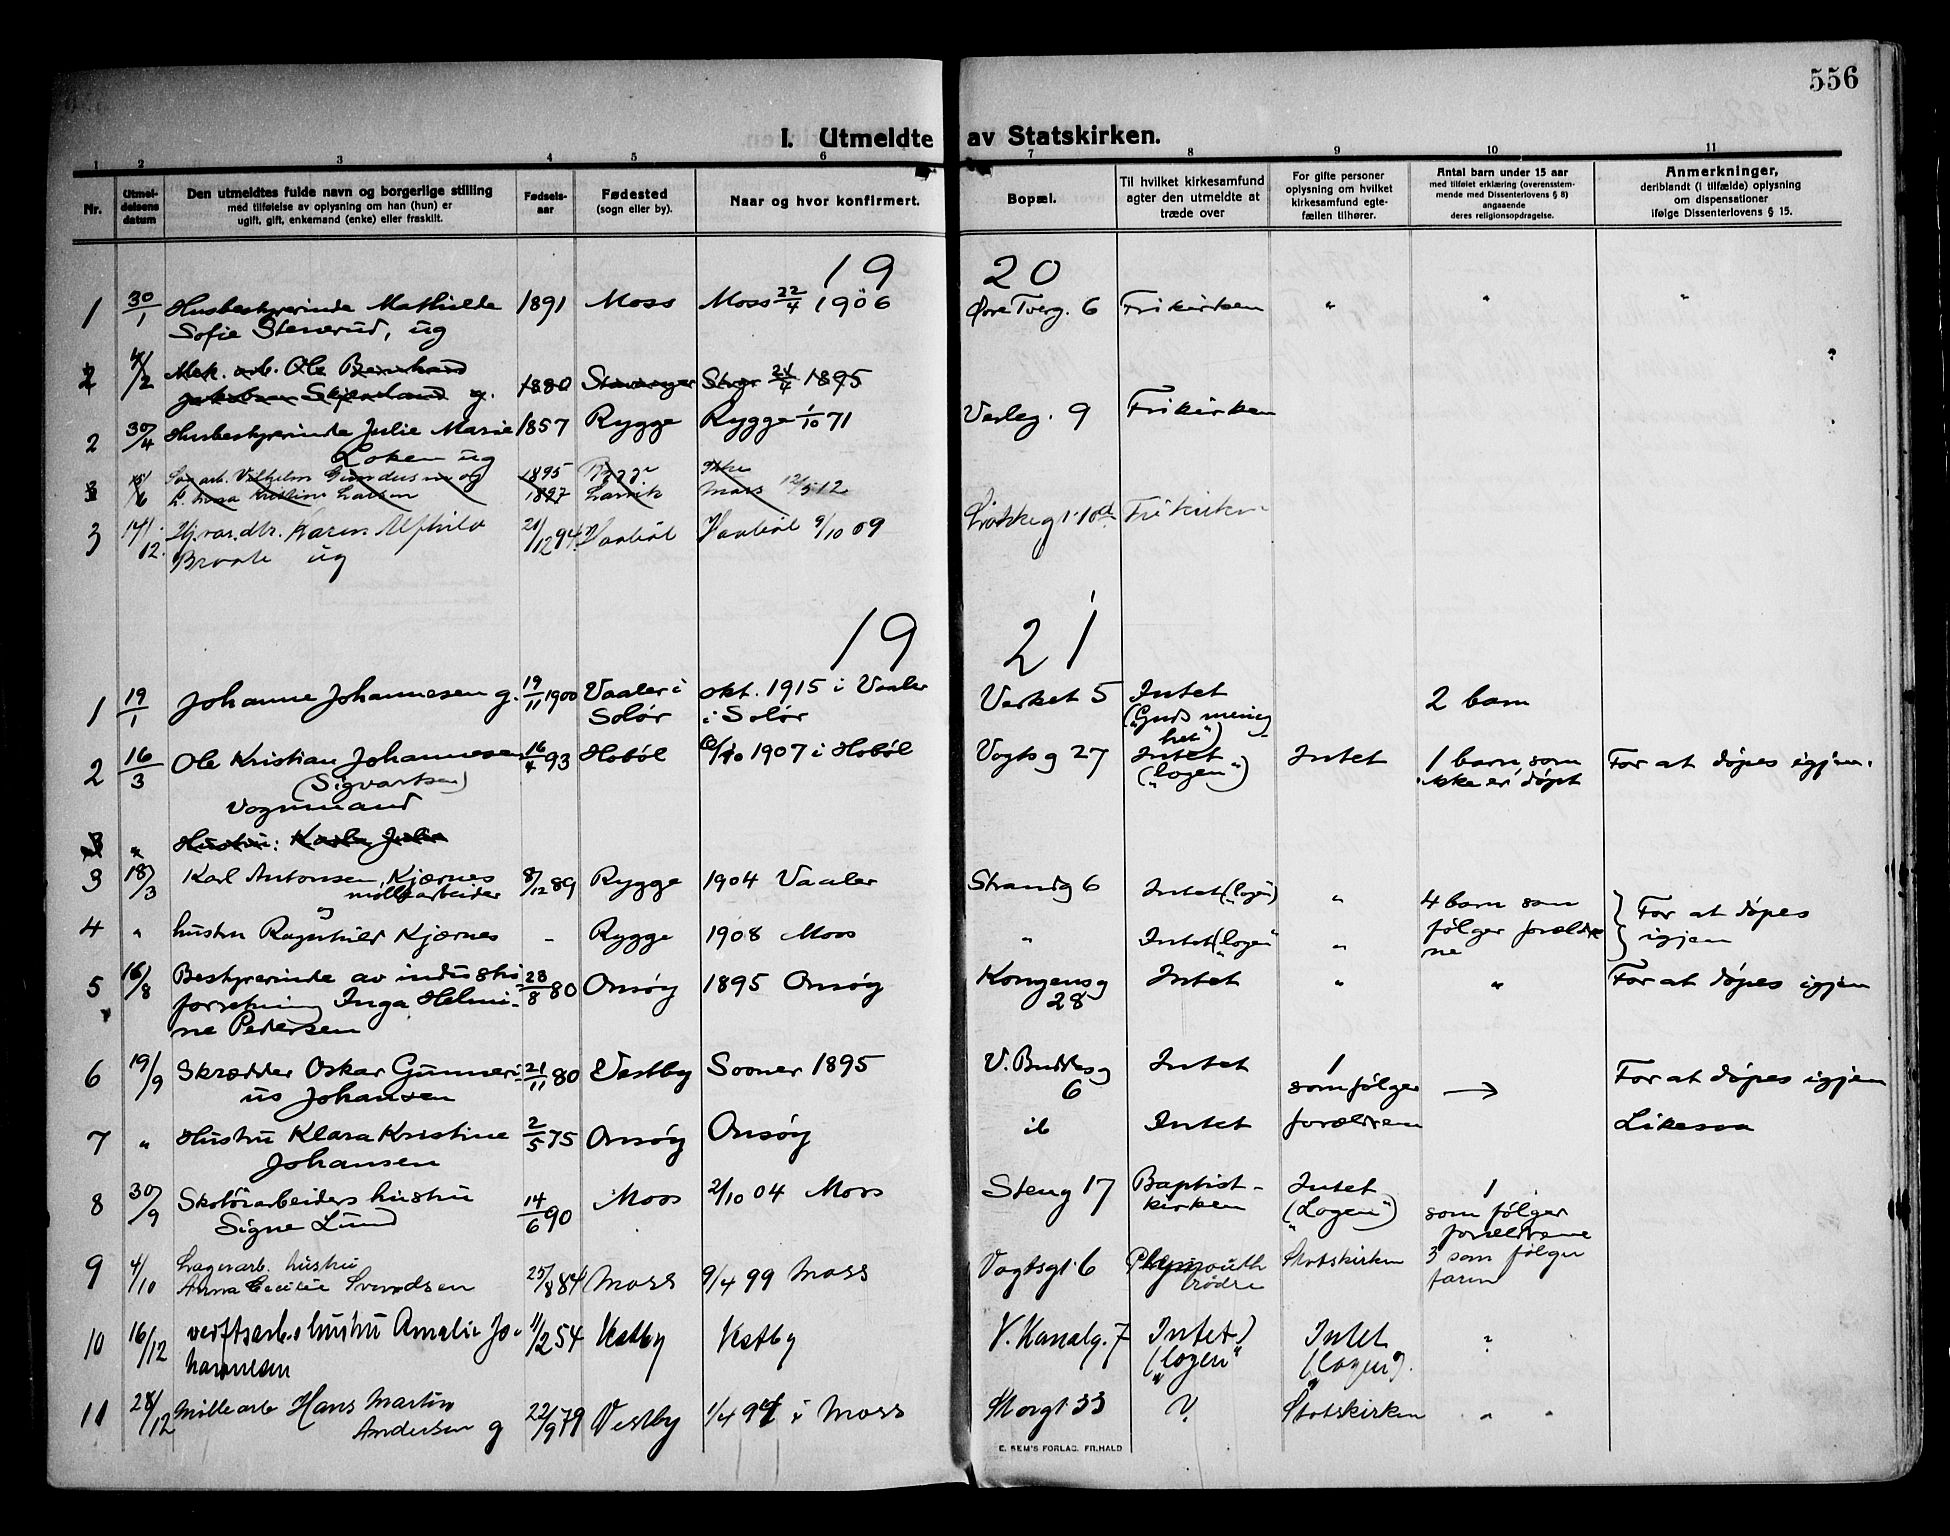 556
I. Utmeldte av Statskirken.
1 2 3 4 5 6 7 8 9 10 11
Nr.
Utmeldelsens datum
Den utmeldtes fulde navn og borgerlige stilling
med tilføielse av oplysning om han (hun) er
ugift, gift, enkemand (enke) eller fraskilt.
Fødselsaar
Fødested
(sogn eller by).
Naar og hvor konfirmert.
Bopæl.
Til hvilket kirkesamfund
agter den utmeldte at
træde over
For gifte personer
oplysning om hvilket
kirkesamfund egte-
fællen tilhører.
Antal barn under 15 aar
med tilføiet erklæring (overensstem-
mende med Dissenterlovens § 8)
angaaende
deres religionsopdragelse.
Anmerkninger,
deriblandt (i tilfælde) oplysning
om dispensationer
ifølge Dissenterlovens § 15.
19 20
1 30/1 Husbestyrerinde Mathilde 1891 Moss Moss 22/4 1906 Øvre Tverg. 6 Frikirken " " "
Sofie Stenerud, ug
2 4/2 Mek. arb. Ole Bernhard
Jakobsen Skjæveland g. 1880 Stavanger Stvgr 21/4 1895
2 30/4 Husbestyrerinde Julie Marie 1857 Rygge Rygge 1/10 71 Verleg. 9 Frikirken
Loken ug
3 15/6 Sagarb. Vilhelm Gundersen og 1895 Rygge
h. Kristine Larsen 1897 Larvik Moss 12/5 12
3 14/12 Karen Alfhild 21/12 94 Vaabøl Vaabøl 9/10 09 10d Frikirken
Braate ug
19 21
1 19/1 Johanne Johannesen g. 19/11 1900 Vaaler i okt. 1915 i Vaaler Verket 5 Intet 2 barn
Solør i Solør ("Guds menig-
het")
2 16/3 Ole Kristian Johannesen 16/4 93 Hobøl 6/10 1907 i Hobøl Vogtsg 27 Intet Intet 1 barn, som For at døpes igjen.
(Sigvartsen) ("logen") ikke er døpt
Vognmand
3 " Hustru: Karla Julie
3 18/3 Karl Antonsen Kjærnes 8/12 89 Rygge 1904 Vaaler Strandg 6 Intet ("logen") " 4 barn som For at døpes
møllearbeider følger forældre igjen
4 " hustru Ragnhild Kjærnes - Rygge 1908 Moss " Intet ("logen" " ne
5 16/8 Bestyrerinde av industri- 28/8 80 Onsøy 1895 Onsøy Kongensg Intet " " For at døpes igjen
forretning Inga Helmi- 28
ne Pedersen
6 19/9 Skrædder Oskar Gunneri- 21/11 80 Vestby Sooner 1895 V. Buddesg Intet 1 → For at døpes igjen
us Johansen 6 som følger
7 " Hustru Klara Kristine 2/5 75 Onsøy Onsøy ib Intet forældrene Likesaa
Johansen
8 30/9 Skotøiarbeiders hustru 14/6 90 Moss 2/10 04 Moss Steng 17 Baptist- Intet 1
Signe Lund kirken ("Logen") som følger
forældrene
9 4/10 Lagerarb. hustru 25/8 84 Moss 9/4 99 Moss Vogtsgt. 6 Plymouth Statskirken 3 som følger
Anna Cecilie Svendsen brødre faren
10 16/12 verftsarb.s hustru Amalie Jo- 11/2 54 Vestby Vestby V. Kanalg. 7 Intet) Intet "
hannesen ("logen" ("logen").
11 28/12 Møllearb Hans Martin 22/9 79 Vestby 1/4 94 i Moss Storgt 33 ? Statskirken " "
Andersen g
E. SEM'S FORLAG. FR.HALD